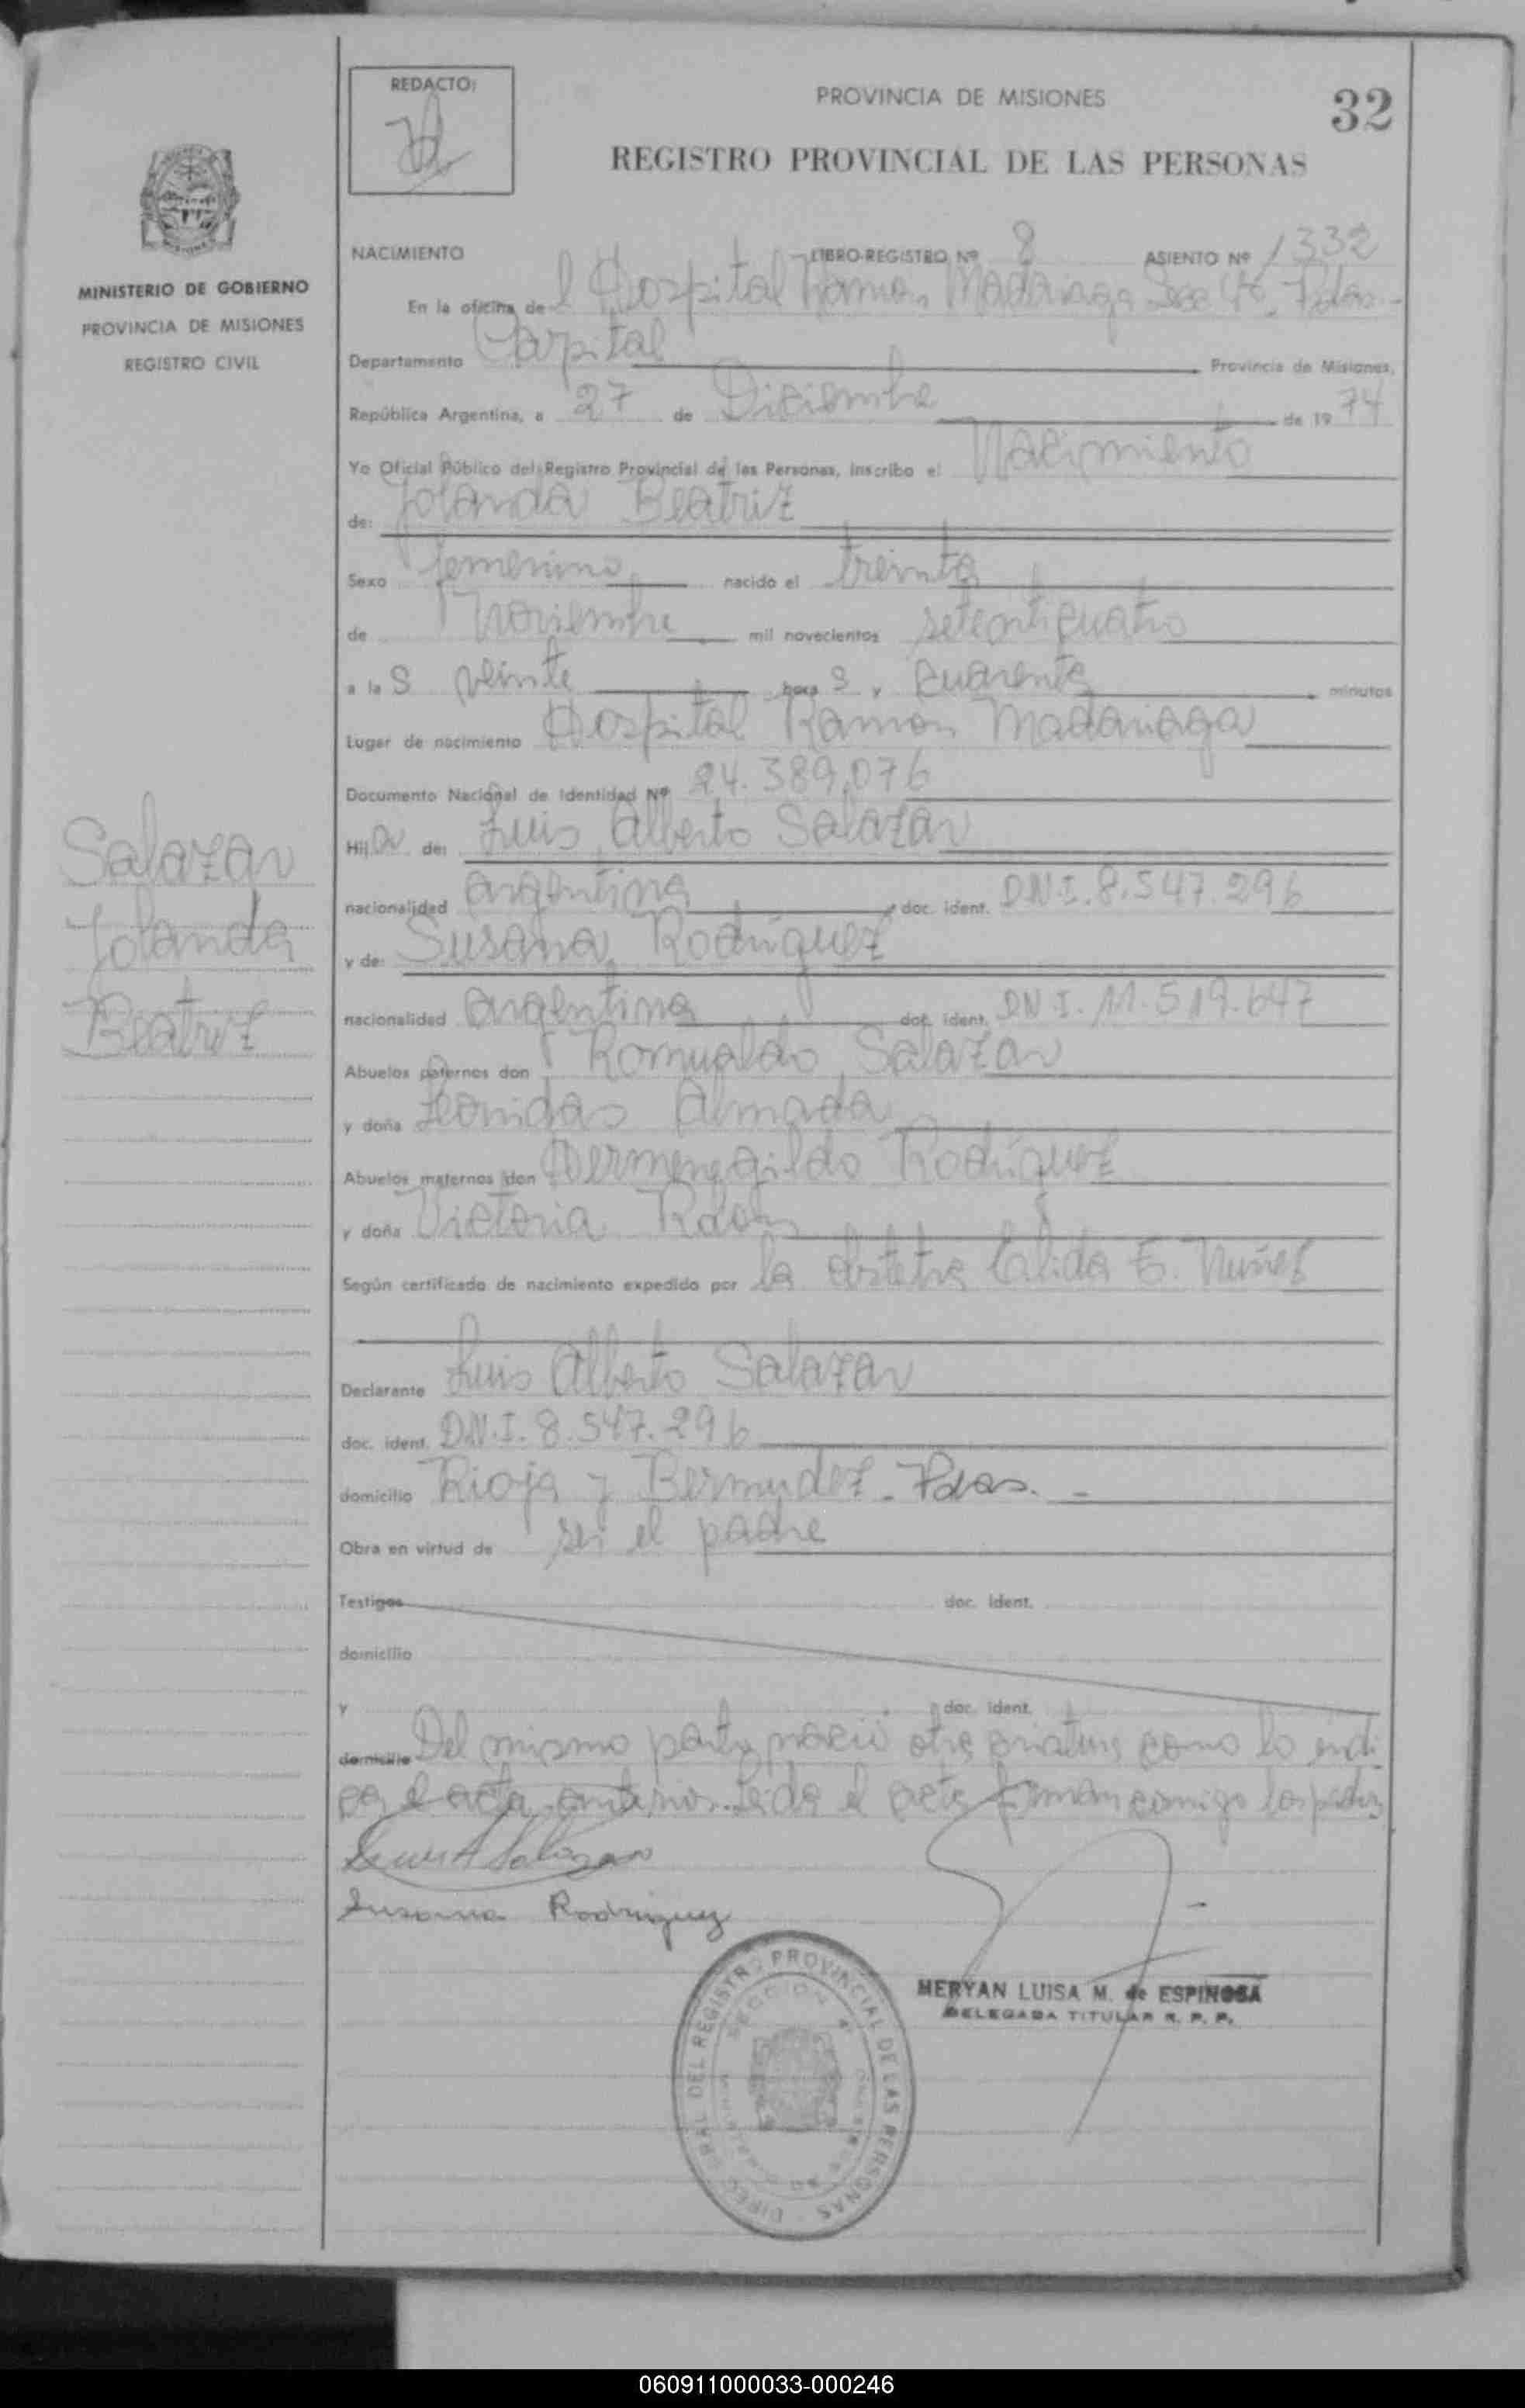 REDACTO:
PROVINCIA DE MISIONES
32
REGISTRO PROVINCIAL DE LAS PERSONAS
MINISTERIO DE GOBIERNO
PROVINCIA DE MISIONES
REGISTRO CIVIL
NACIMIENTO LIBRO-REGISTRO Nº 8 ASIENTO Nº 1332
En la oficina de l Hospital Ramon Madariaga Secc 4º. Pdas-
Departamento Capital Provincia de Misiones,
República Argentina, a 27 de Diciembre de 1974
Yo Oficial Público del Registro Provincial de las Personas, inscribo el Nacimiento
de: Yolanda Beatriz
Sexo femenino nacido el treinta
de Noviembre mil novecientos setenticuatro
a la s veinte hora s y cuarenta minutos
Lugar de nacimiento Hospital Ramon Madariaga
Documento Nacional de Identidad Nº 24.389.076
Hij a de: Luis Alberto Salazar
nacionalidad argentina doc. ident. DNI. 8.547.296
y de: Susana Rodriguez
nacionalidad argentina doc. ident. DNI. 11.519.647
Abuelos paternos don Romualdo Salazar
y doña Leonidas Almada
Abuelos maternos don Hermenegildo Rodríguez
y doña Victoria
Según certificado de nacimiento expedido por la obstetra E. Nuñez
Declarante Luis Alberto Salazar
doc. ident. D.N.I. 8.547.296
domicilio Rioja y Bermudez - Pdas. -
Obra en virtud de ser el padre
Testigos doc. ident.
domicilio
y doc. ident.
domicilio Del mismo parto nació otra criatura como lo indi
ca el acta anterior. Leida el acta firman conmigo los padres
Salazar
Yolanda
Beatriz
Luis A Salazar
Susana Rodriguez
MERYAN LUISA M. de ESPINOSA
DELEGADA TITULAR R. P. P.
DEL REGISTRO PROVINCIAL DE LAS PERSONAS
SECCION 4ª
060911000033-000246